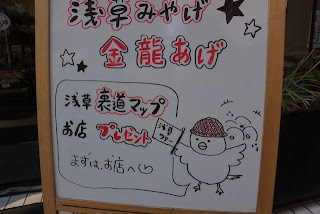 浅草みやげ
金龍あげ
浅草裏道マップ
お店プレゼント
まずは、お店へ
浅草
ツアー